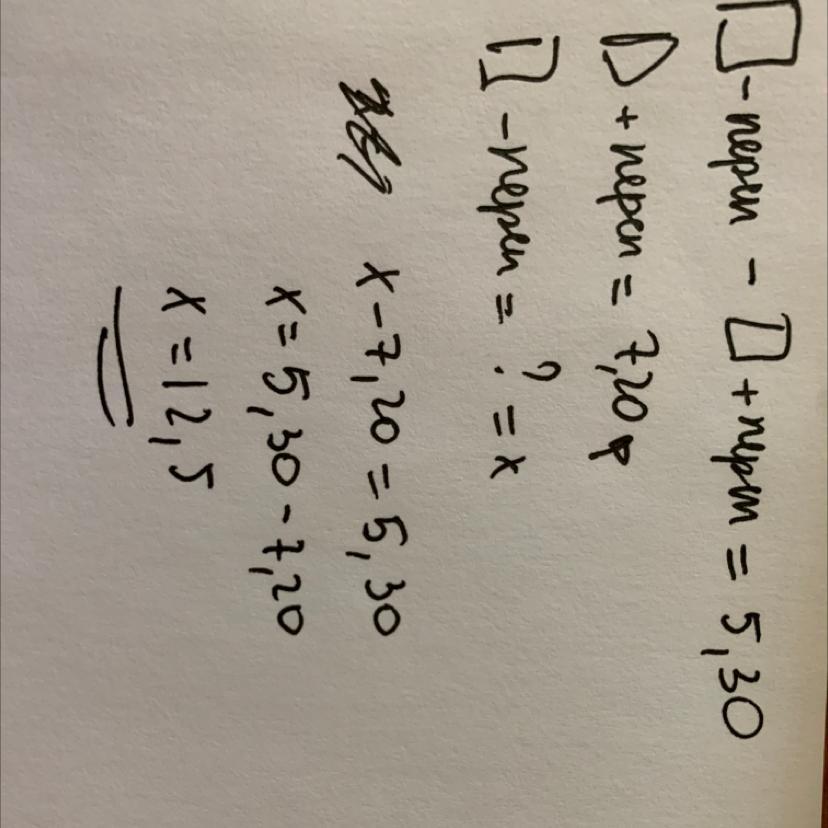 - перил - + перил = 5,30
+ перил = 7,20 р
- перил = ? = x
x - 7,20 = 5,30
x = 5,30 - 7,20
x = 12,5